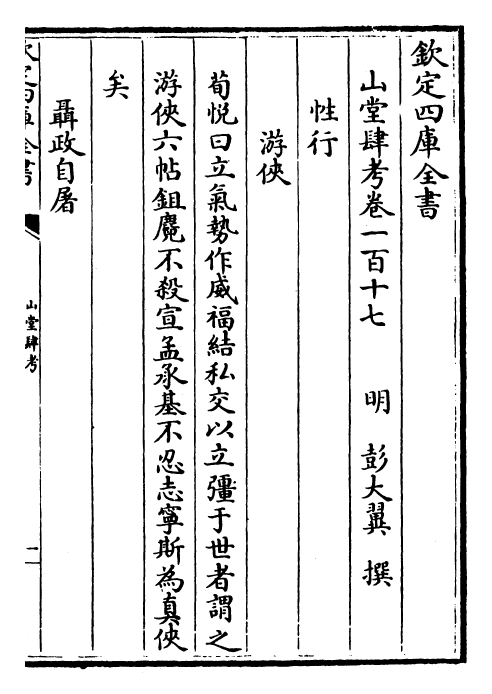 欽定四庫全書
山堂肆考卷一百十七　　明　彭大翼　撰
性行
游俠
荀悅曰立氣勢作威福結私交以立彊于世者謂之
游俠六帖鉏麑不殺宣孟承基不忍志寧斯為真俠
矣
聶政自屠
欽定四庫全書
山堂肆考
一